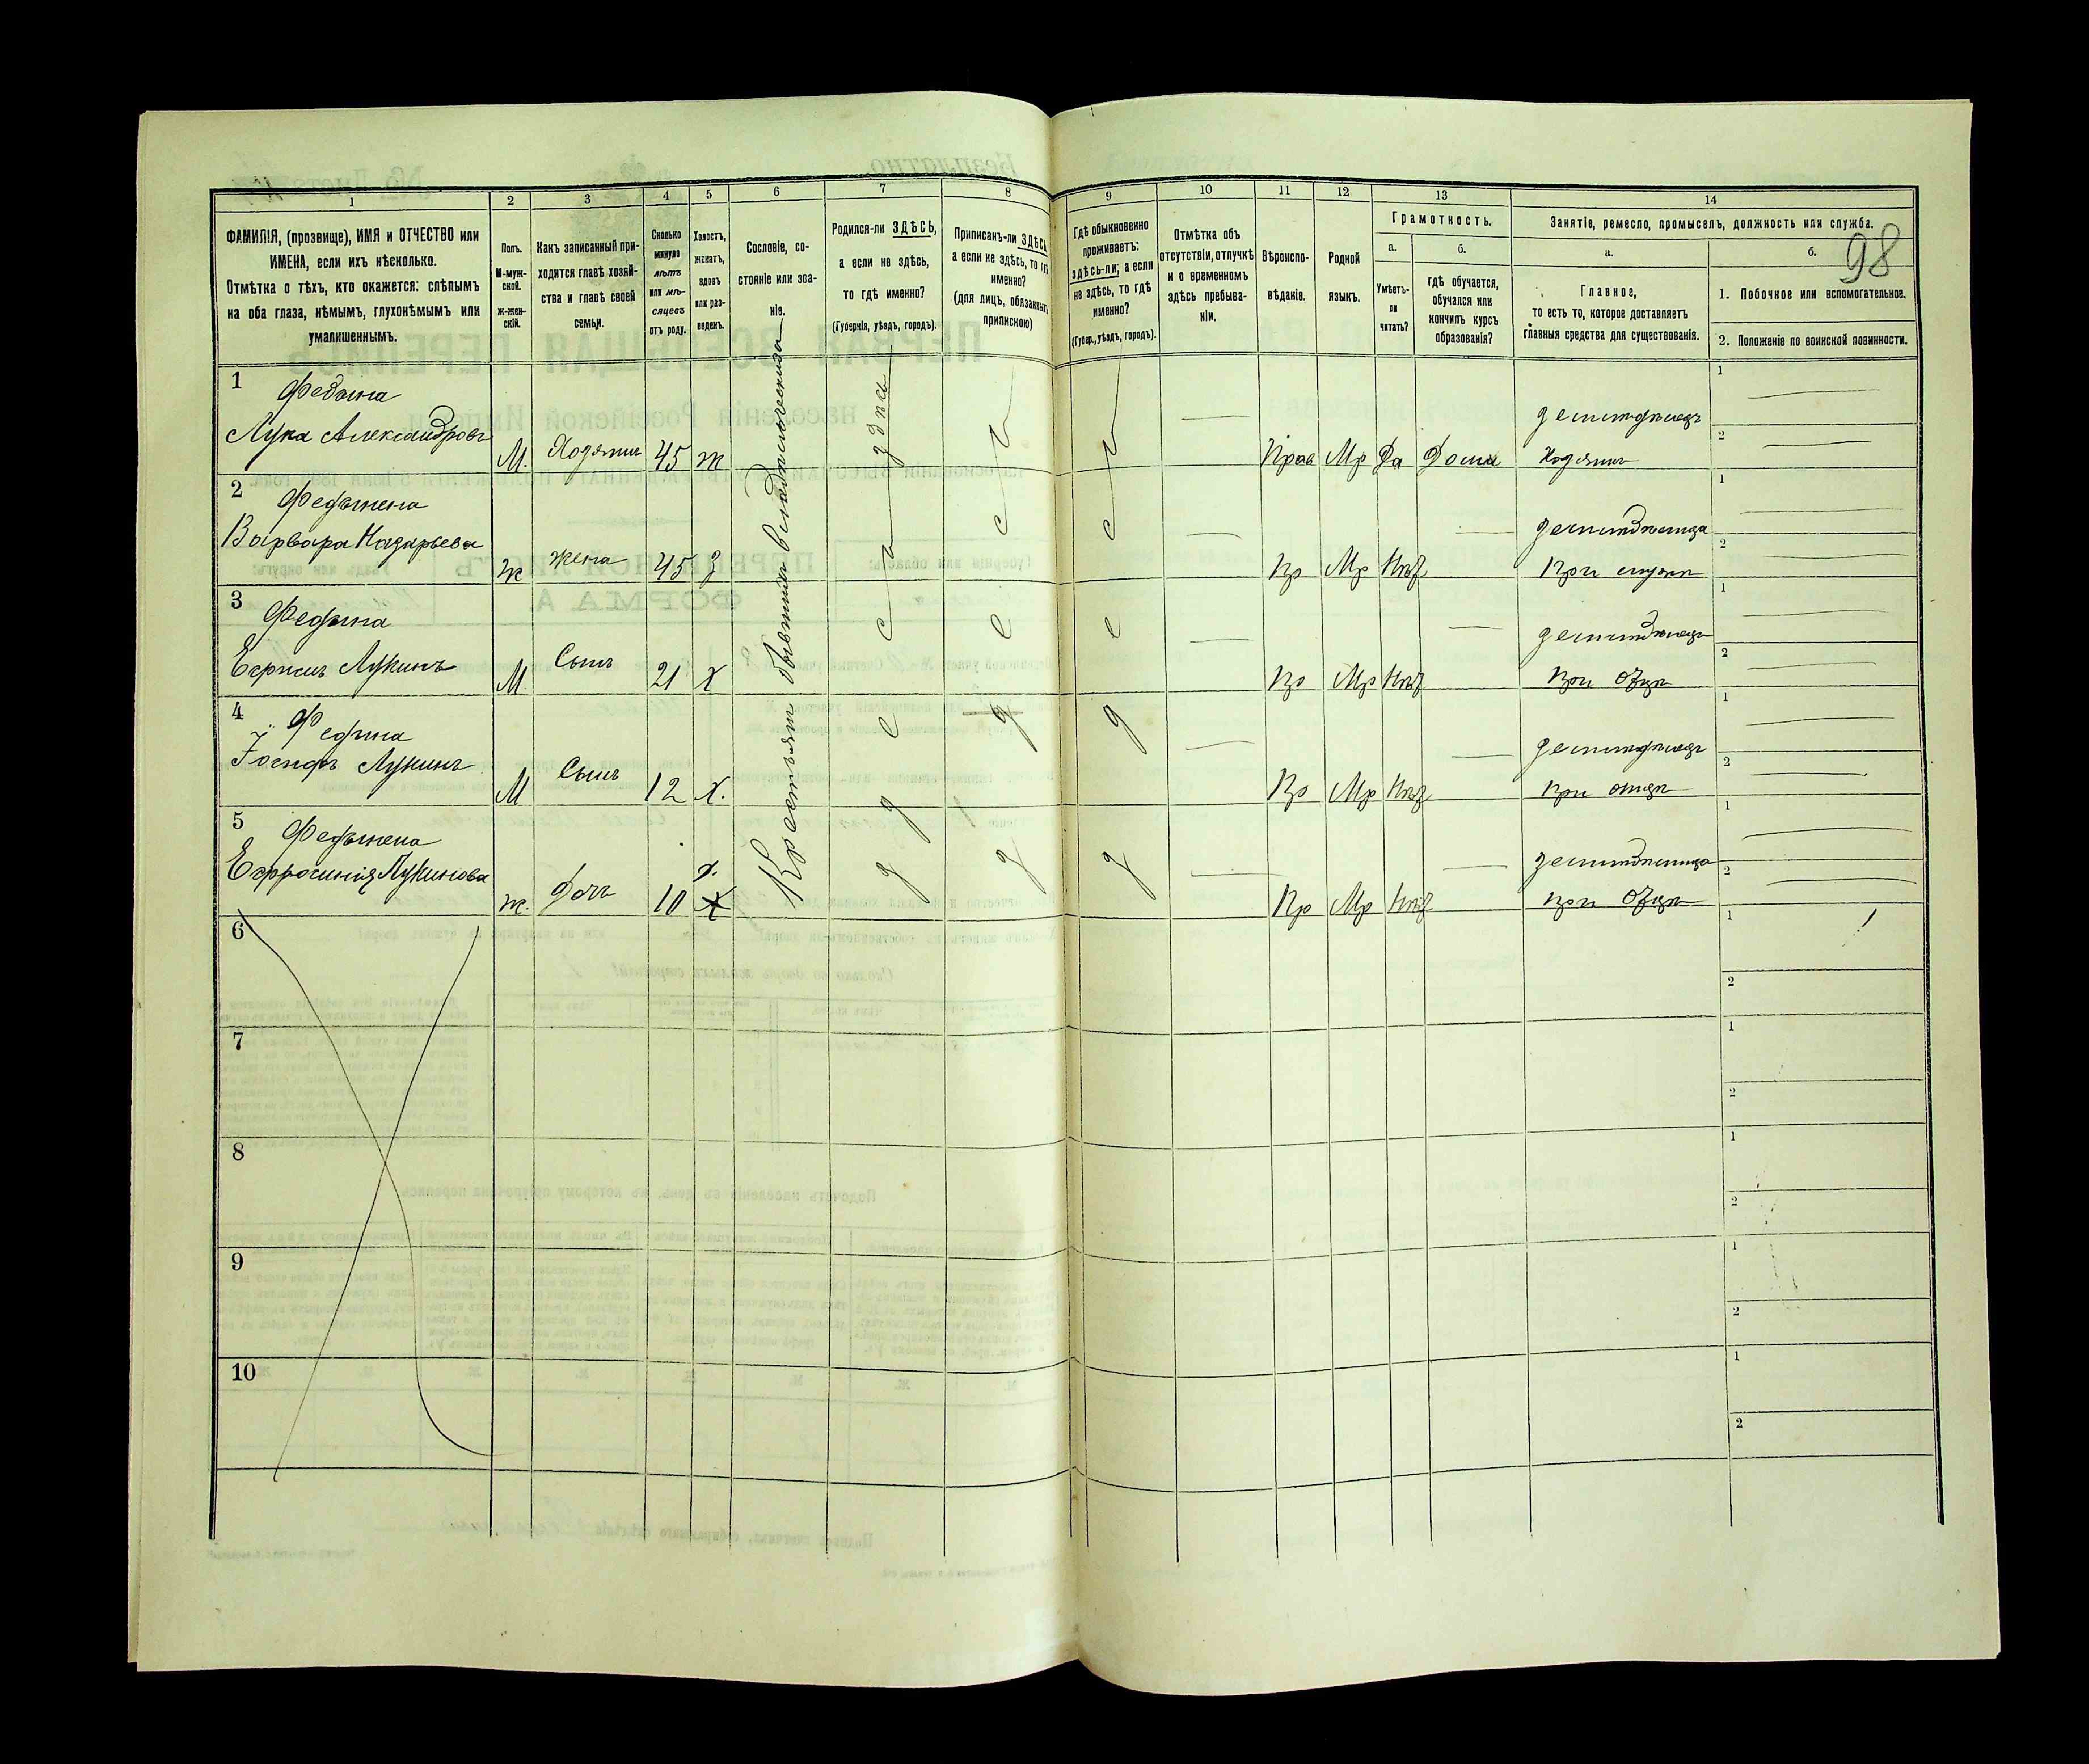 1
2
3
4
5
6
7
8
9
10
11
12
13
14
ФАМИЛІЯ, (прозвище), ИМЯ и ОТЧЕСТВО или
ИМЕНА, если ихъ нѣсколько.
Отмѣтка о тѣхъ, кто окажется: слѣпымъ
на оба глаза, нѣмымъ, глухонѣмымъ или
умалишеннымъ.
Полъ.
М-муж-
ской.
ж-жен-
скій.
Какъ записанный при-
ходится главѣ хозяй-
ства и главѣ своей
семьи.
Сколько
минуло
лѣтъ
или мѣ-
сяцевъ
отъ роду.
Холостъ,
женатъ,
вдовъ
или раз-
веденъ.
Сословіе, со-
стояніе или зва-
ніе.
Родился-ли ЗДѢСЬ,
а если не здѣсь,
то гдѣ именно?
(Губернія, уѣздъ, городъ).
Приписанъ-ли ЗДѢСЬ
а если не здѣсь, то гдѣ
именно?
(для лицъ, обязанныхъ
припискою)
Гдѣ обыкновенно
проживаетъ:
здѣсь-ли, а если
не здѣсь, то гдѣ
именно?
(Губер., уѣздъ, городъ).
Отмѣтка объ
отсутствіи, отлучкѣ
и о временномъ
здѣсь пребыва-
ніи.
Вѣроиспо-
вѣданіе.
Родной
языкъ.
Грамотность.
а.
б.
Умѣетъ-
ли
читать?
гдѣ обучается,
обучался или
кончилъ курсъ
образованія?
Занятіе, ремесло, промыселъ, должность или служба.
98
а.
б.
Главное,
то есть то, которое доставляетъ
главныя средства для существованія.
1. Побочное или вспомогательное.
2. Положеніе по воинской повинности.
Крестьян бывших
здѣсь
1
Федына
Лука Александровъ
М.
Хозяин
45
ж
Прав
Мр
Да
Дома
Хозяин
1
2
2
Федынена
Варвара Назарьева
ж
жена
45
З
Пр
Мр
Нѣт
1
2
3
Федына
Лукинъ
М
Сынъ
21
Х
Пр
Мр
Нѣт
при Отцѣ
1
2
4
Федына
Іосифъ Лукинъ
М
Сынъ
12
Х.
Пр
Мр
Нѣт
при отцѣ
1
2
5
Федынена
Ефросинія Лукинова
ж.
Дочь
10
Пр
Мр
Нѣт
при Отцѣ
1
2
6
1
2
7
1
2
8
1
2
9
1
2
10
1
2